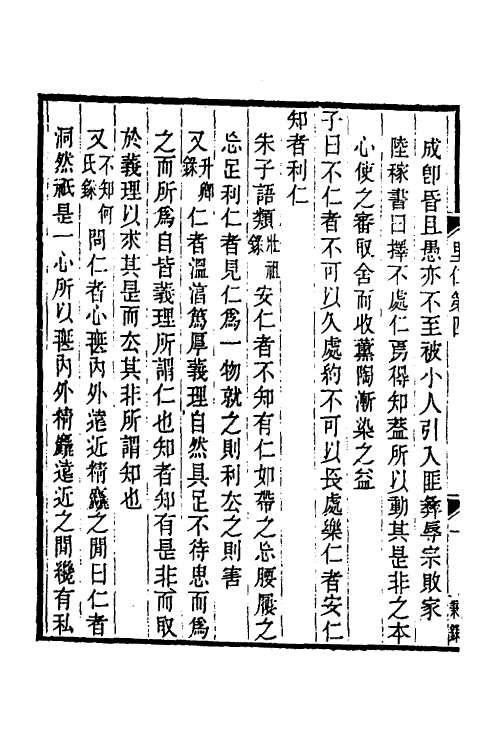 里仁第四
一
成卽昏且愚亦不至被小人引入匪彝辱宗敗家
陸稼書曰擇不處仁焉得知蓋所以動其是非之本
心使之審取舍而收薰陶漸染之益
子曰不仁者不可以久處約不可以長處樂仁者安仁
知者利仁
朱子語類壯祖錄安仁者不知有仁如帶之忘腰屨之
忘足利仁者見仁爲一物就之則利去之則害
又升卿錄仁者溫湻篤厚義理自然具足不待思而爲
之而所爲自皆義理所謂仁也知者知有是非而取
於義理以求其是而去其非所謂知也
又不知何氏錄問仁者心無內外遠近精觕之閒曰仁者
洞然祗是一心所以無內外精觕遠近之閒纔有私